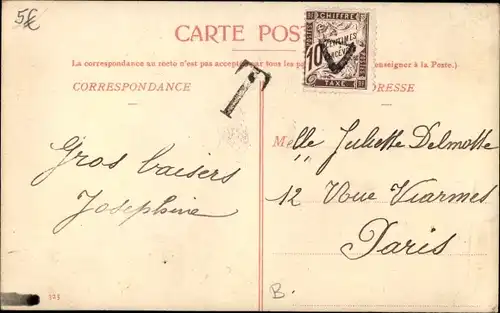 5€
CARTE POST
La correspondance au recto n'est pas acceptée par tous les pa (enseigner à la Poste.)
CORRESPONDANCE
DRESSE
CHIFFRE
10
CENTIMES
TAXE
T
Gros baisers
Josephine
Melle Juliette Delmotte
12 Rue Viarmes
Paris
B.